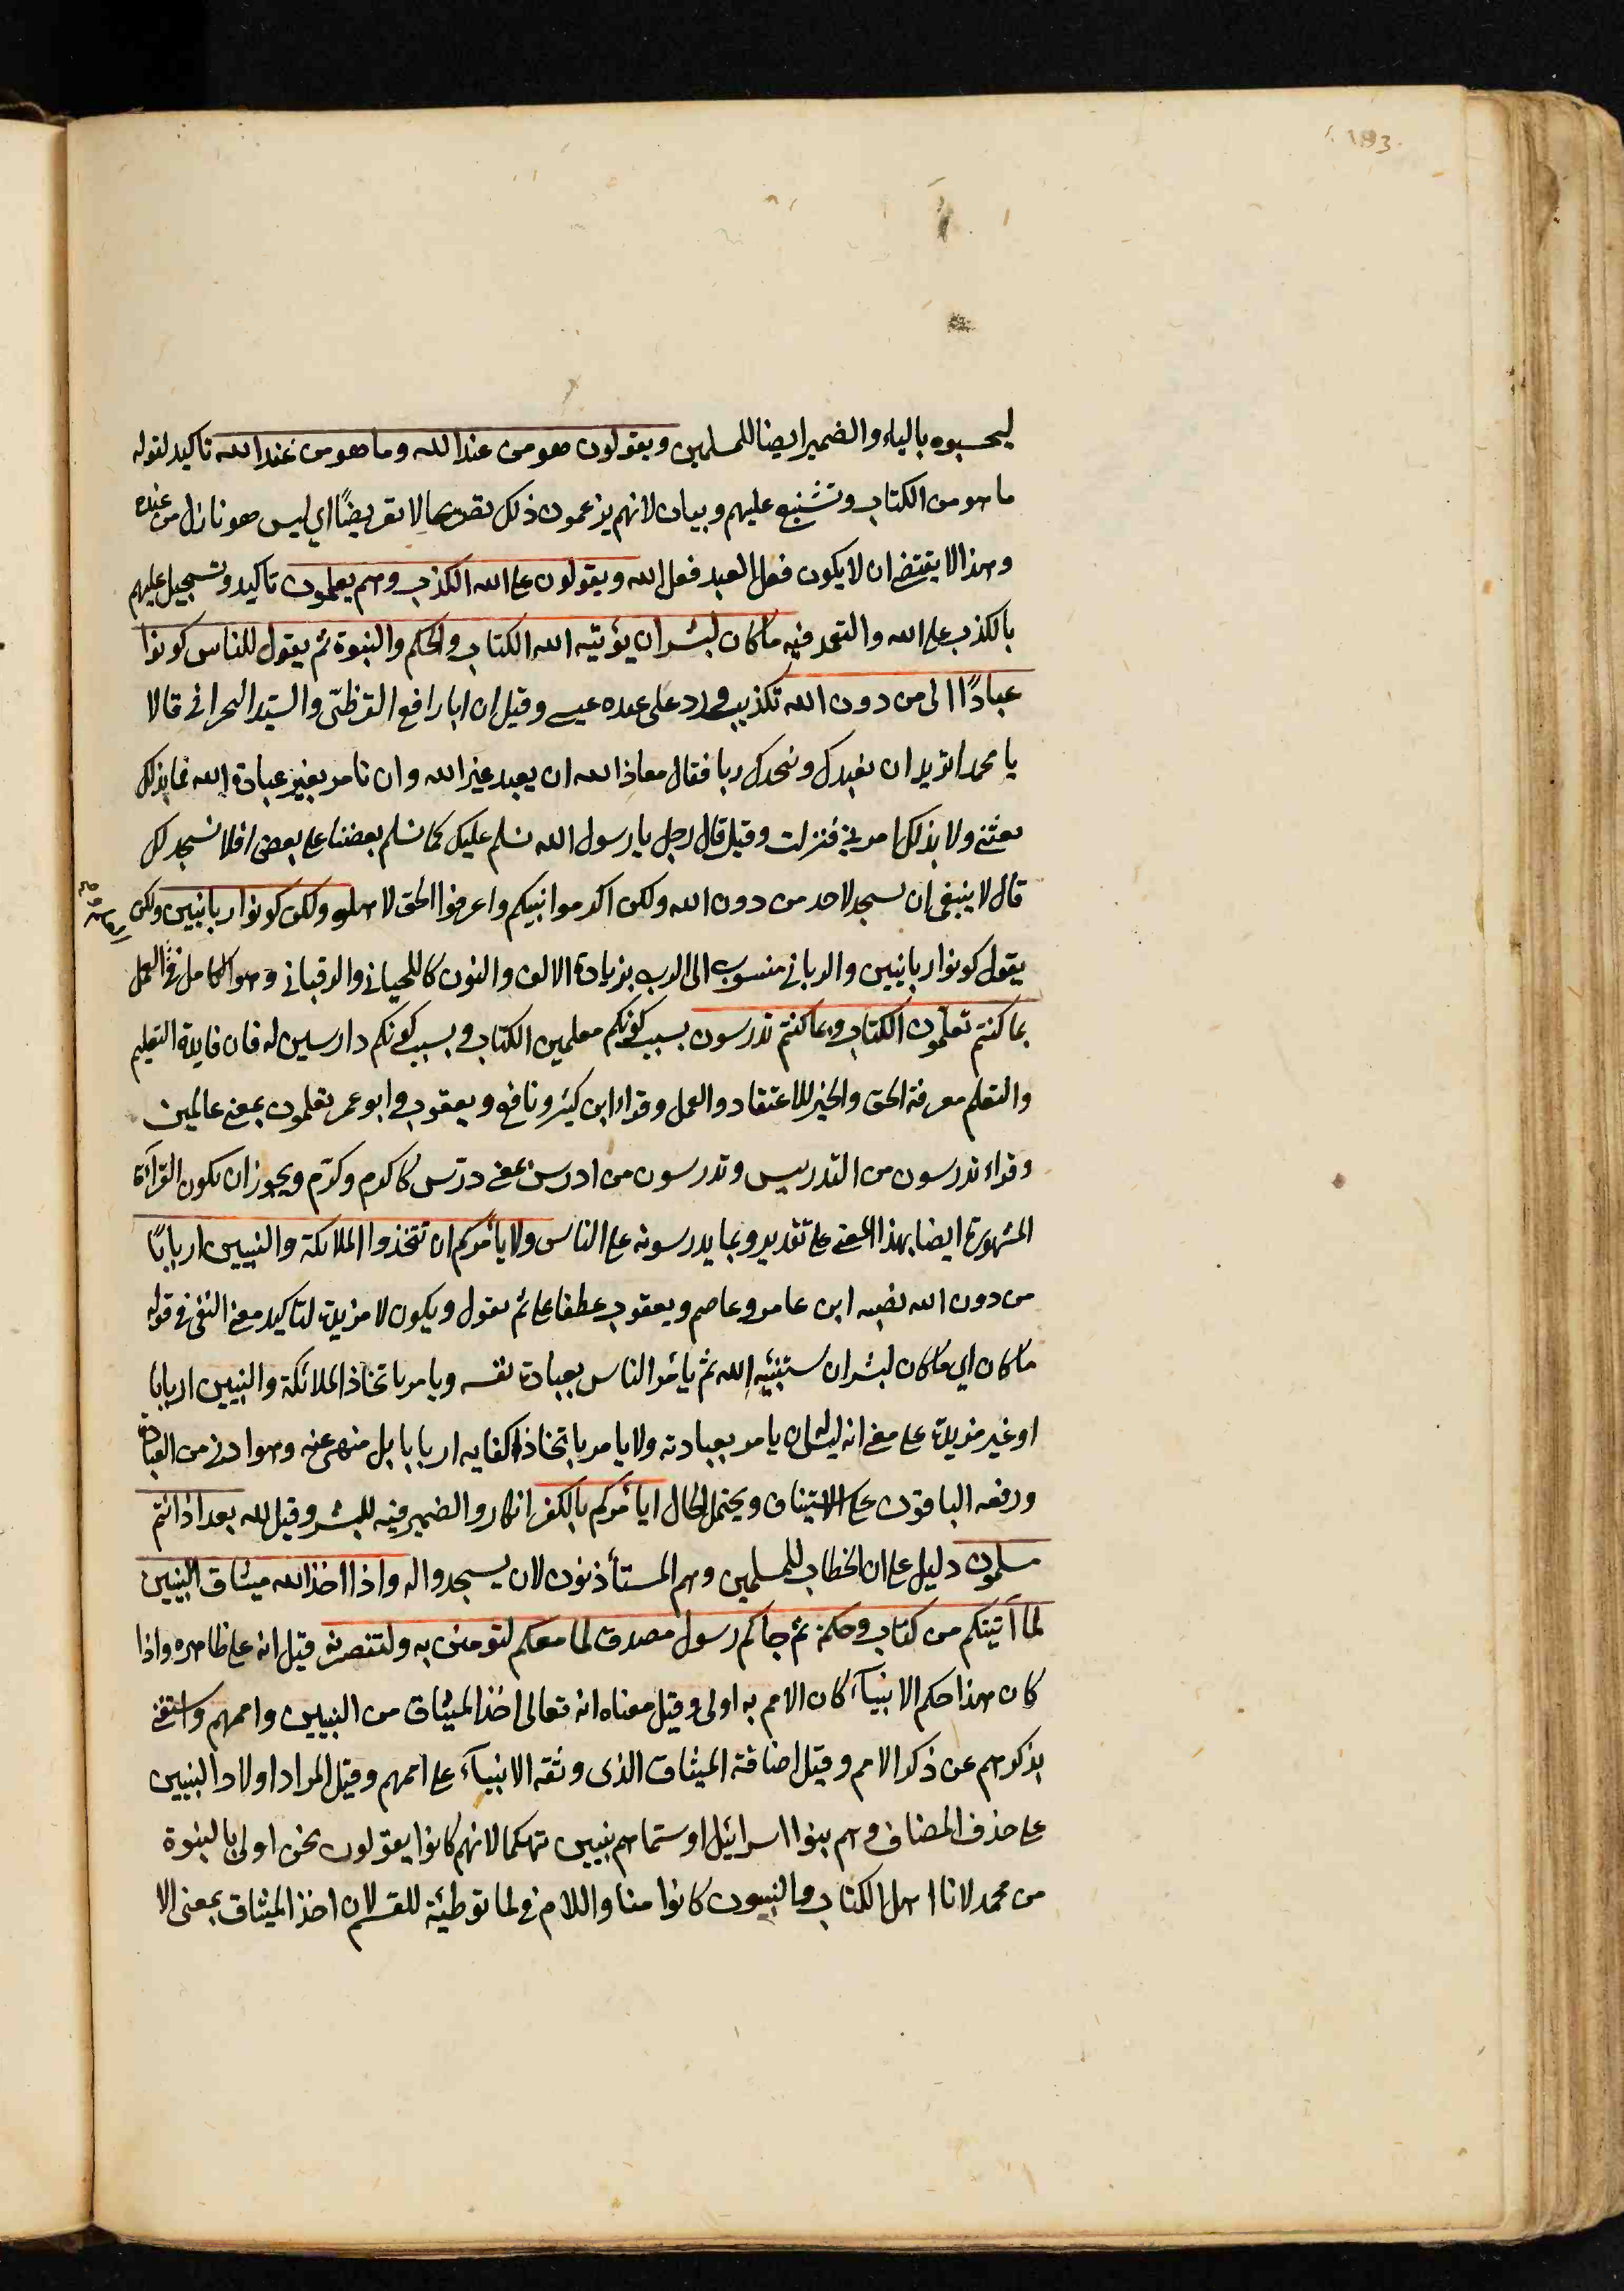 193
ليحسبوه بالياء والضمير ايضا للمسلمين ويقولون هو من عند الله وما هو من عند الله تاكيد لقوله
ما هو من الكتاب وتشنيع عليهم وبيان لانهم يزعمون ذلك تصريحا لا تعريضًا اي ليس هو نازل من عنده
وهذا لا يقتضي ان لا يكون فعل العبد فعل الله ويقولون على الله الكذب وهم يعلمون تاكيد وتسجيل عليهم
بالكذب على الله والتعمد فيه ما كان لبشر ان يؤتيه الله الكتاب والحكم والنبوة ثم يقول للناس كونوا
عبادًا لي من دون الله تكذيب ورد على عبده عيسى وقيل ان ابا رافع القرظيّ والسيّد النجراني قالا
يا محمد اتريد ان نعبدك ونتخذك ربا فقال معاذ الله ان يعبد غير الله وان نامر بغير عبادة الله فما بذلك
بعثني ولا بذلك امرني فنزلت وقيل قال رجل يا رسول الله نسلم عليك كما نسلم بعضنا على بعض افلا نسجد لك
قال لا ينبغي ان يسجد لاحد من دون الله ولكن اكرموا نبيكم واعرفوا الحق لاهله ولكن كونوا ربانيين ولكن
يقول كونوا ربانيين والرباني منسوب الى الرب بزيادة الالف والنون كاللحياني والرقباني وهو الكامل في العمل
بما كنتم تعلّمون الكتاب وبما كنتم تدرسون بسبب كونكم معلمين الكتاب وبسبب كونكم دارسين له فان فايدة التعليم
والتعلم معرفة الحق والخير للاعتقاد والعمل وقراء ابن كثير ونافع ويعقوب وابو عمر تعلمون بمعنى عالمين
وقراء تدرسون من التدريس وتدرسون من ادرس بمعنى درّس كاكرم وكرّم ويجوز ان تكون القرآة
المشهورة ايضا بهذا المعنى على تقدير وبما يدرسونه على الناس ولا يامركم ان تتخذوا الملائكة والنبيين اربابًا
من دون الله نصبه ابن عامر وعاصم ويعقوب عطفا على ثم يقول ويكون لا مزيدة لتاكيد معنى النفي في قوله
ما كان اي ما كان لبشر ان يستنبئه الله ثم يأمر الناس بعبادة نفسه ويامر باتخاذ الملائكة والنبيين اربابا
او غير مزيدة على معنى انه ليس له ان يامر بعبادته ولا يامر باتخاذ اكفايه اربابا بل منهى عنه وهو ادنى من العبادة
ورفعه الباقون على الاستيناف ويحتمل الحال ايأمركم بالكفر انكار والضمير فيه للبشر وقيل لله بعد اذ انتم
مسلمون دليل على ان الخطاب للمسلمين وهم المستأذنون لان يسجدوا له واذ اخذ الله ميثاق النبيين
لما آتيتكم من كتاب وحكمة ثم جاكم رسول مصدق لما معكم لتؤمنن به ولتنصرنه قيل انه على ظاهره واذا
كان هذا حكم الانبيآء كان الامم به اولى وقيل معناه انه تعالى اخذ الميثاق من النبيين واممهم واستغنى
بذكرهم عن ذكر الامم وقيل اضافة الميثاق الذى وثقه الانبيآء على اممهم وقيل المراد اولاد النبيين
على حذف المضاف وهم بنوا اسرائيل او سماهم نبيين تهكما لانهم كانوا يقولون نحن اولى بالنبوة
من محمد لانا اهل الكتاب والنبيون كانوا منا واللام في لما توطئة للقسم لان اخذ الميثاق بمعنى الا